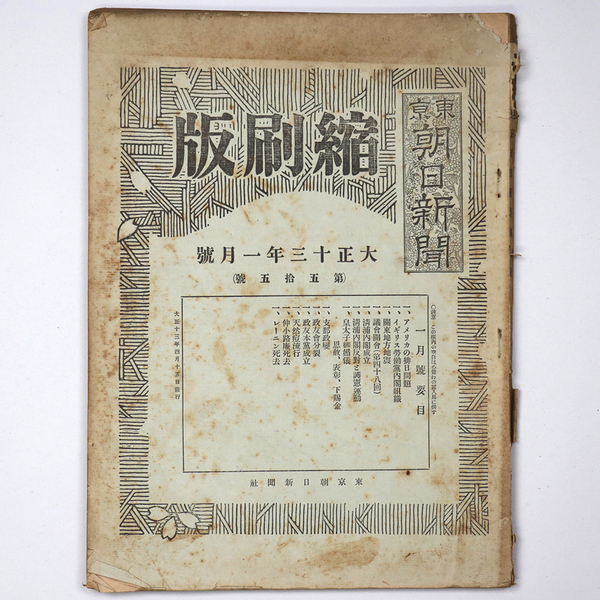 東京
朝日新聞
縮刷版
大正十三年一月號
(第五拾五號)
一月號要目
一、アメリカの排日問題
一、イギリス勞働黨内閣組織
一、關東地方地震
一、議會開會(第四十八回)
一、淸浦内閣成立
一、淸浦内閣反對と護憲運動
一、皇太子御婚儀
恩赦、表彰、下賜金
一、支那政變
一、政友會分裂
一、政友本黨成立
一、天然痘流行
一、仲小路廉死去
一、レーニン死去
大正十三年四月十五日發行
東京朝日新聞社